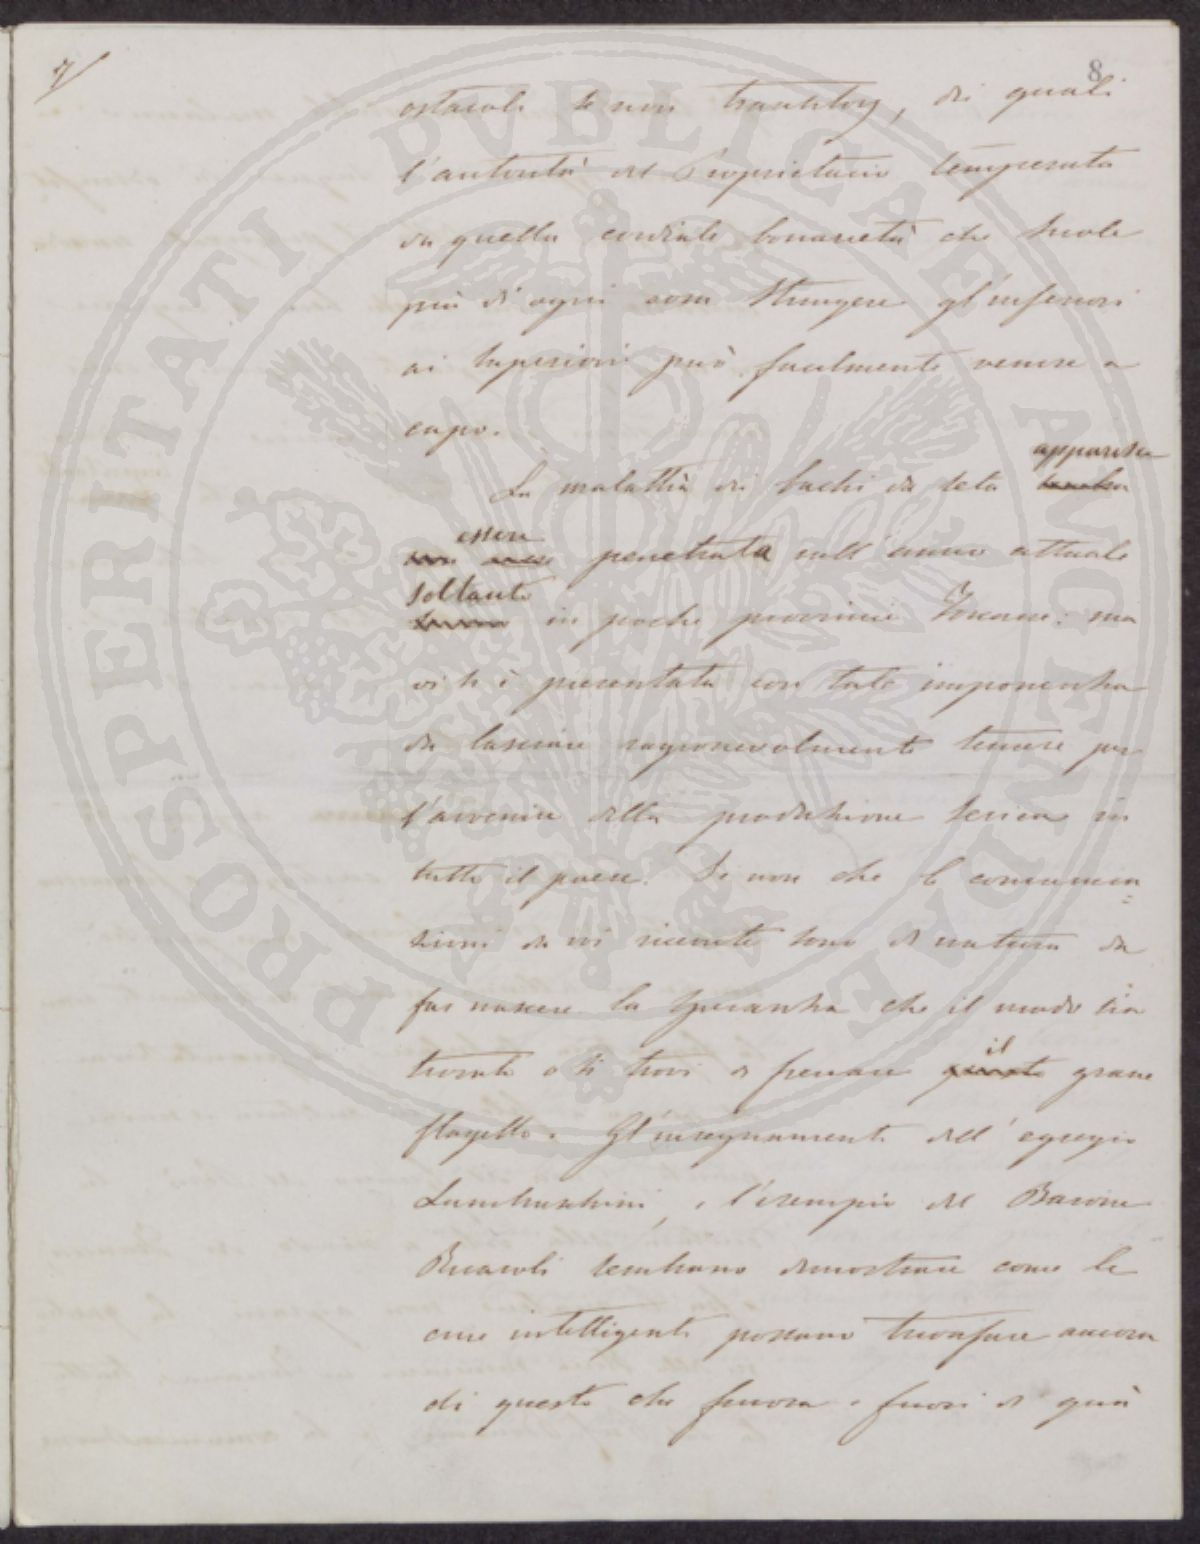 7/
8
ostacoli se non transitorj, dei quali
l'autorità del Proprietario temperata
da quella cordiale bonarietà che suole
più d'ogni cosa stringere gl'inferiori
ai superiori può facilmente venire a
capo.
apparisce
La malattia dei bachi da seta sembra
essere
penetrata nell'anno attuale
soltanto
in poche provincie Toscane: ma
vi si è presentata con tale imponenza
da lasciare ragionevolmente temere per
l'avvenire della produzione serica in
tutto il paese. Se non che le comunica=
zioni da voi ricevute sono di natura da
far nascere la speranza che il modo sia
il
trovato o si trovi di frenare questo grave
flagello. Gl'insegnamenti dell'egregio
Lambruschini, e l'esempio del Barone
Ricasoli sembrano dimostrare come le
cure intelligenti possano trionfare ancora
di questo che finora e fuori di quà
PROSPERITATI PUBLICAE AUGENDAE